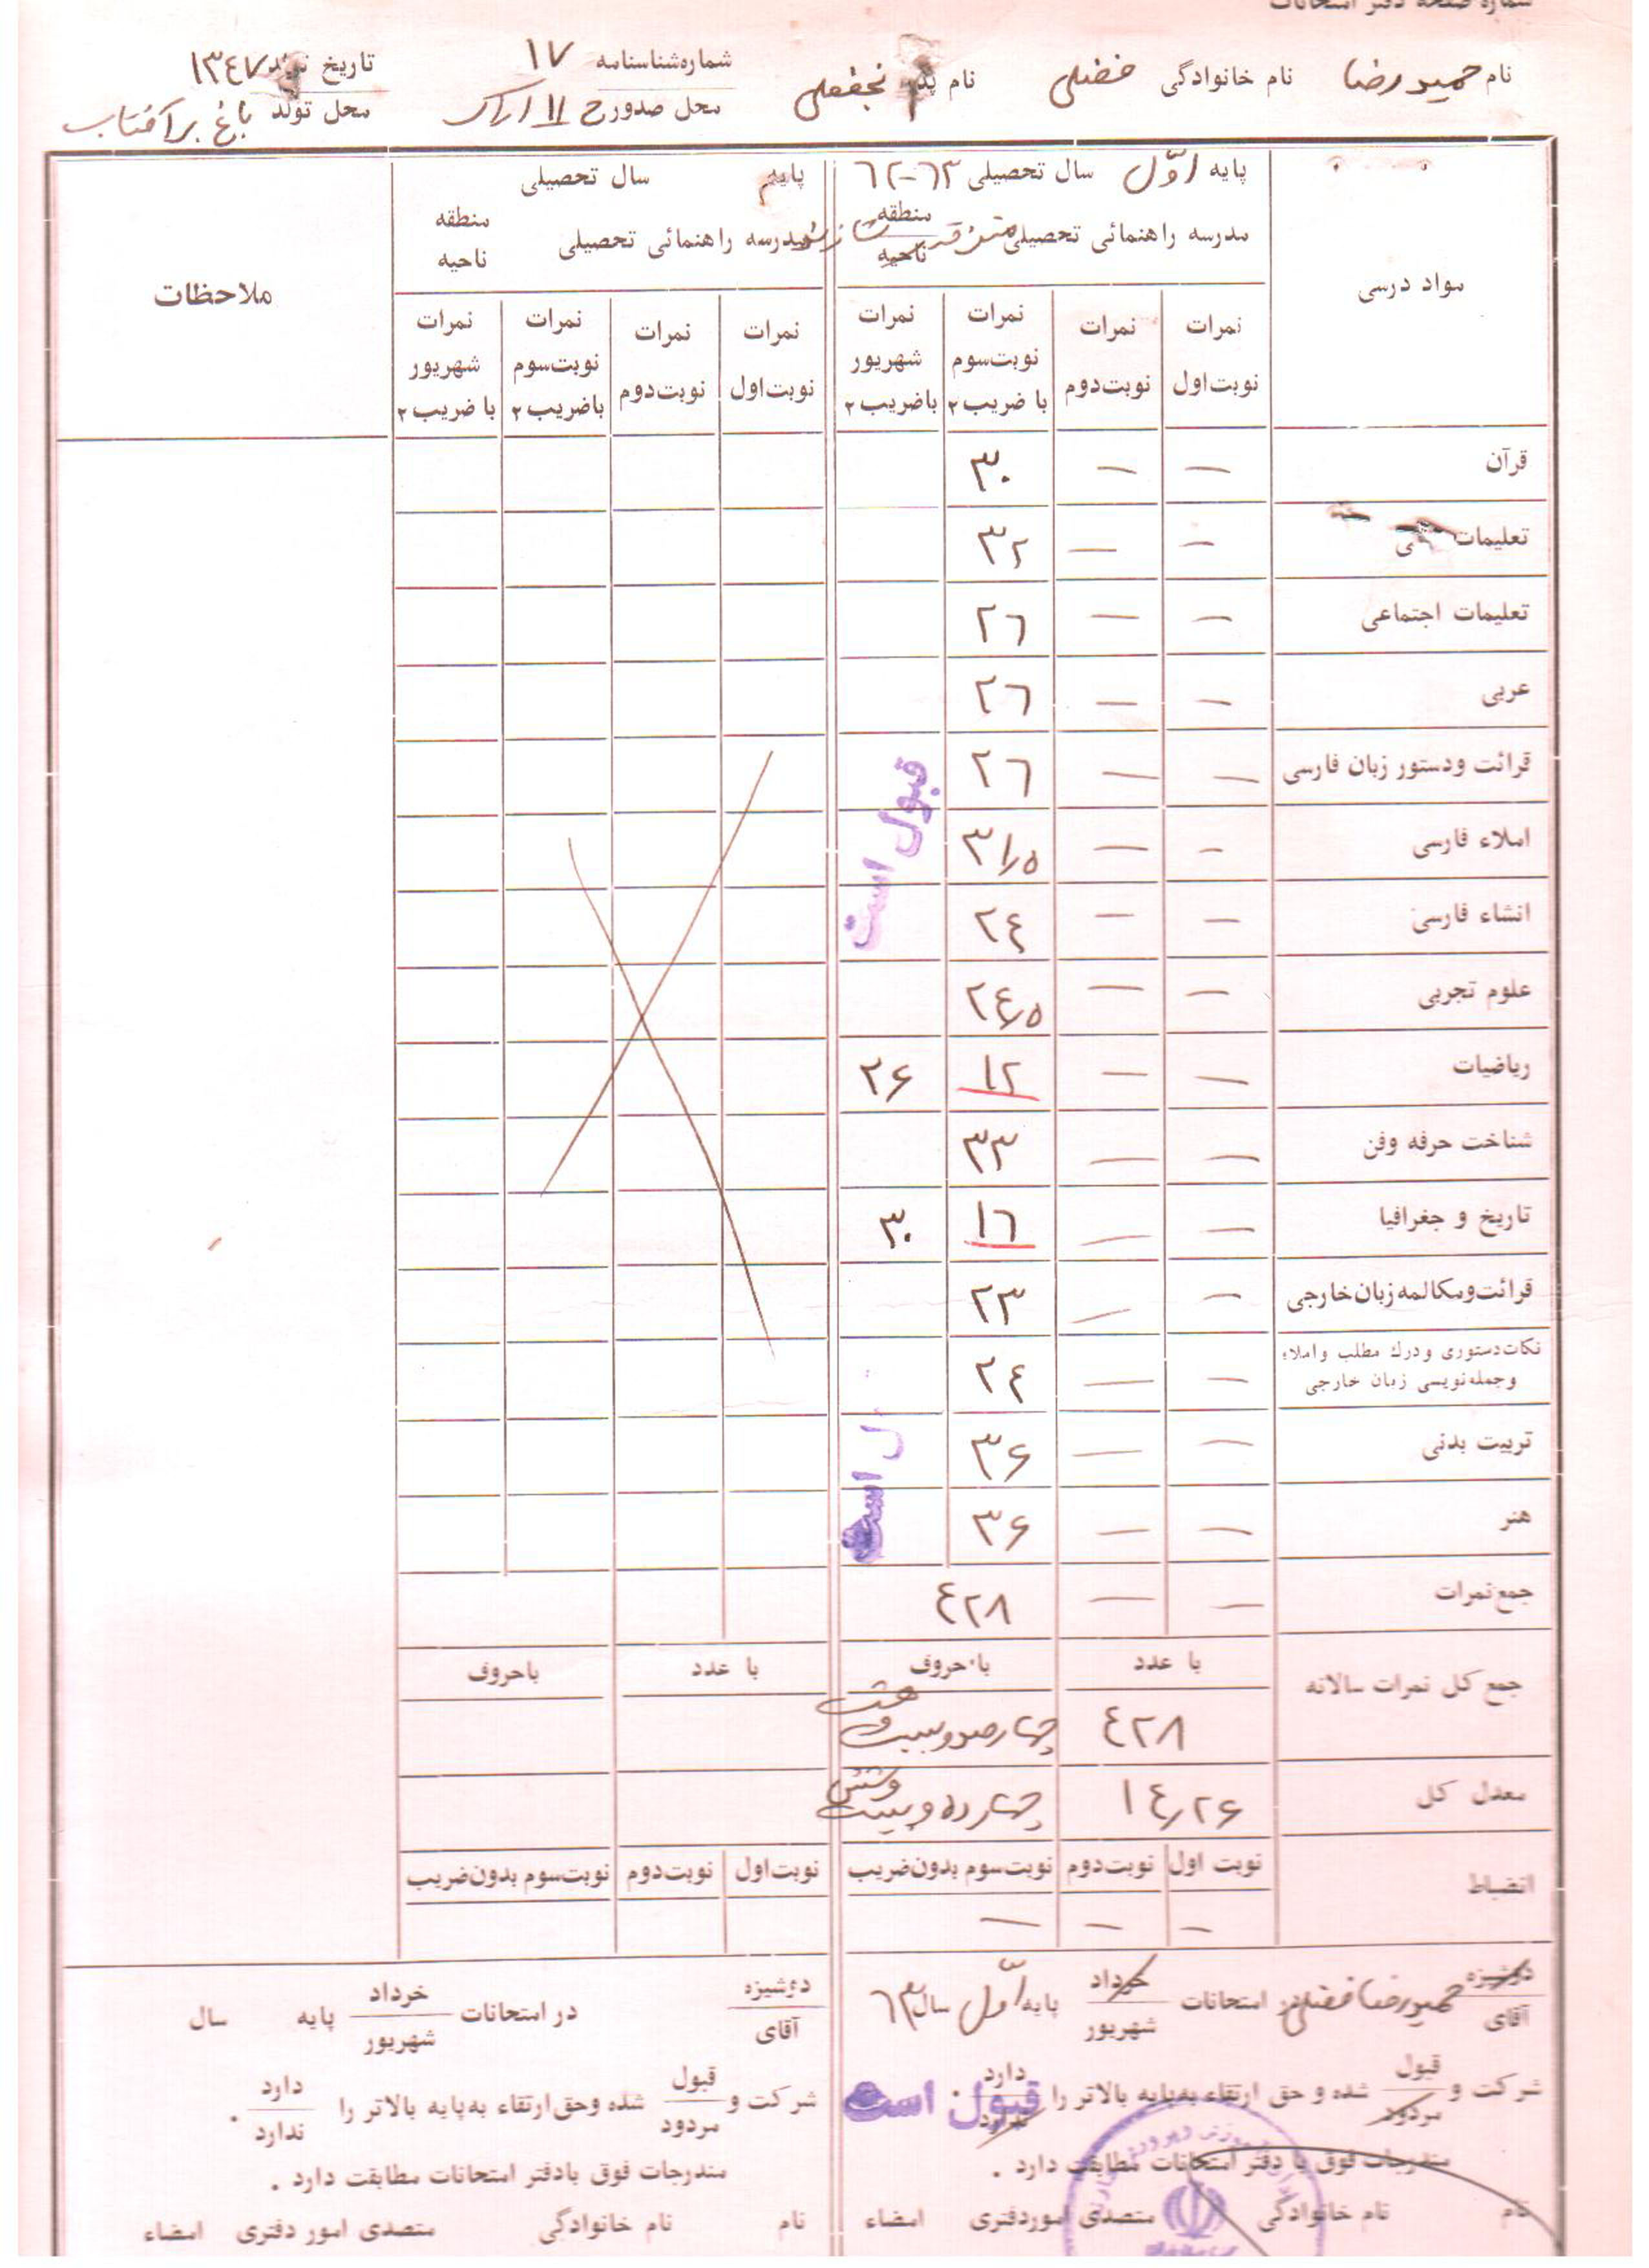 شماره صفحه دفتر امتحانات
نام حمیدرضا نام خانوادگی فضلی نام پدر نجفعلی شماره شناسنامه ۱۷ تاریخ تولد ۱۳۴۷
محل صدور ح ۱۱ اراک محل تولد باغ برآفتاب
مواد درسی
پایه اوّل سال تحصیلی ۶۳-۶۲
مدرسه راهنمائی تحصیلی منطقه ناحیه
نمرات نوبت اول
نمرات نوبت دوم
نمرات نوبت سوم با ضریب ۲
نمرات شهریور باضریب ۲
پایه سال تحصیلی
مدرسه راهنمائی تحصیلی منطقه ناحیه
نمرات نوبت اول
نمرات نوبت دوم
نمرات نوبت سوم باضریب ۲
نمرات شهریور با ضریب ۲
ملاحظات
قرآن — — ۳۰
تعلیمات — — ۳۲
تعلیمات اجتماعی — — ۲۶
عربی — — ۲۶
قرائت ودستور زبان فارسی — — ۲۶
املاء فارسی — — ۳۱/۵
انشاء فارسی — — ۲۴
علوم تجربی — — ۲۴/۵
ریاضیات — — ۱۲ ۲۶
شناخت حرفه وفن — — ۳۳
تاریخ و جغرافیا — — ۱۶ ۳۰
قرائت ومکالمه زبان خارجی — — ۲۳
نکات دستوری و درك مطلب و املاء
وجمله نویسی زبان خارجی — — ۲۴
تربیت بدنی — — ۳۶
هنر — — ۳۶
قبول است
جمع نمرات — — ۴۲۸
جمع کل نمرات سالانه
با عدد باحروف با عدد باحروف
۴۲۸ چهارصدوبیست و هشت
معدل کل ۱۴/۲۶ چهارده و بیست وشش
انضباط
نوبت اول نوبت دوم نوبت سوم بدون ضریب نوبت اول نوبت دوم نوبت سوم بدون ضریب
— — —
دوشیزه آقای حمیدرضا فضلی در امتحانات خرداد شهریور پایه اوّل سال ۶۳
شرکت و قبول مردود شده و حق ارتقاء به پایه بالاتر را دارد ندارد .
قبول است
مندرجات فوق با دفتر امتحانات مطابقت دارد .
نام نام خانوادگی متصدی اموردفتری امضاء
دوشیزه آقای در امتحانات خرداد شهریور پایه سال
شرکت و قبول مردود شده وحق ارتقاء به پایه بالاتر را دارد ندارد .
مندرجات فوق بادفتر امتحانات مطابقت دارد .
نام نام خانوادگی متصدی امور دفتری امضاء